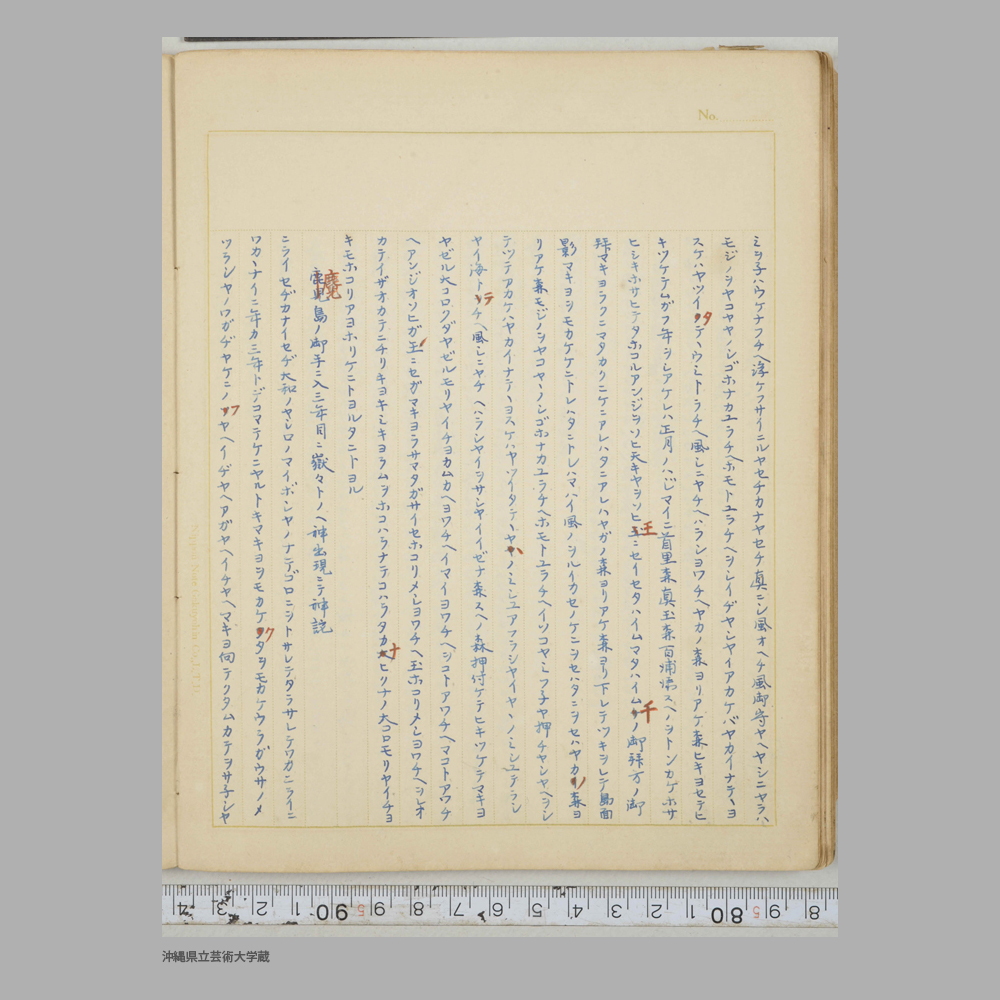 No.
ミヲ子ハウケナフチヘ浮ケフサイニルヤセチカナヤセチ眞ニシ風オヘチ風御寄ヤヘヤシニヤラハ
モジノシヤコヤヤノシゴホナカユラチヘホモトユラチヘヲシレイヂヤシヤイアカケバヤカイナテヽヨ
スケハヤツイタテヽウミトラチヘ風シニヤチヘハラシヨワチヘヤカノ森ヨリアケ森ヒキヨセテヒ
キツケテムガフ年ヲシアケレハ正月ノハジマイニ首里森眞玉森百浦添スヘノヲトンカケホサ
ヒシキホサヒテタホコルアンジヲソヒ天キヤヲソヒ王ニセイセタハイムマタハイム千ノ御拜万ノ御
拜マキヨラクニマタカリニケニアレハタニアレハヤガノ森ヨリアケ森ヨリ下レテツキヲレテ島面
影マキヨヲシモカケケニトレハタニトレハマハイ風ノヲルイカセノケニヲセハタニヲセハヤカノ森ヨ
リアケ森モジノシヤコヤヽノシゴホナカユラチヘホモトユラチヘイソコヤミフ子ヤ押チヤシヤヘヲシ
テツテアカケハヤカイナテヽヨスケハヤツイタテヽヤハノミシユアフラシヤイヤヽノミシユテラシ
ヤイ海トテチヘ風シニヤチヘハラシヤイヲサンヤイイゼナ森スヘノ森押付ケテヒキツケテマキヨ
ヤゼル大コロクダヤゼルモリヤイチヨカムカヘヨワチヘイマイヨワチヘシコトアワチヘマコトアワチ
ヘアンジオソヒガ玉ニセガマキヨラサマタガサイセホコリメシヨワチヘ玉ホコリメシヨワチヘヲレオ
カテイザオカテニチリキヨキミキヨラムヲホコハラナテコハラタカナヒリナノ大コロモリヤイチヨ
キモホコリアヨホリケニトヨルタニトヨル
鹿児島ノ御手ニ入三年目ニ嶽々トノヘ神出現ニテ神託
ニライセヂカナイセヂ大和ノヤシロノマイボシヤノナテゴロニシトサレテタラサレテワカニライニ
ワカヽナイニ二年カ三年トデコマテケニヤルトキマキヨヲシモカケタクヲモカケウラガウサノメ
ツラシヤノワガヂヤケニノフヤヘイヂヤヘアガヤヘイチヤヘマキヨ向テクタムカテヲサ子シヤ
沖縄県立芸術大学蔵